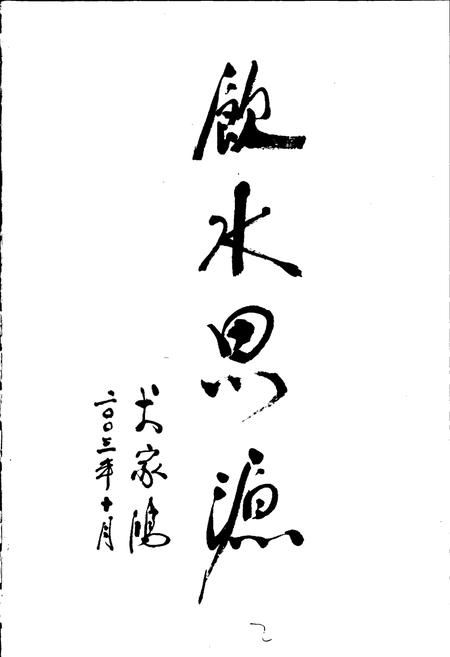 飲水思源
方家鴻
二〇〇三年十月